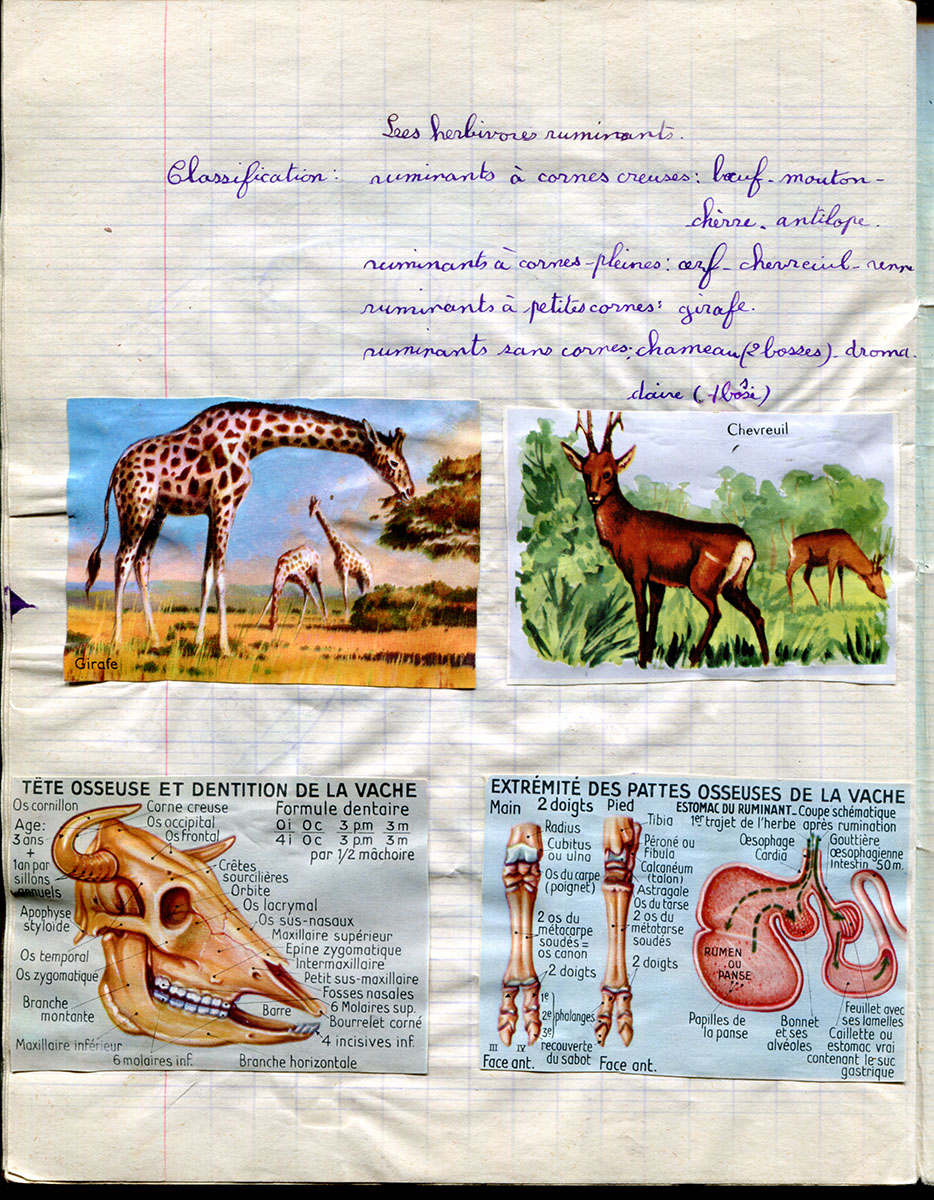 Les herbivores ruminants.
Classification: ruminants à cornes creuses: bœuf - mouton -
chèvre - antilope.
ruminants à cornes-pleines: cerf - chevreuil - renne
ruminants à petites cornes: girafe.
ruminants sans cornes: chameau (2 bosses) - droma-
daire (1 bosse)
Girafe
Chevreuil
TÊTE OSSEUSE ET DENTITION DE LA VACHE
Os cornillon
Age:
3 ans
+
1 an par
sillons
annuels
Apophyse
styloïde
Os temporal
Os zygomatique
Branche
montante
Maxillaire inférieur
6 molaires inf.
Corne creuse
Os occipital
Os frontal
Formule dentaire
0 i 0 c 3 p.m 3 m
4 i 0 c 3 p.m 3 m
par 1/2 mâchoire
Crêtes
sourcilières
Orbite
Os lacrymal
Os sus-nasaux
Maxillaire supérieur
Epine zygomatique
Intermaxillaire
Petit sus-maxillaire
Fosses nasales
6 Molaires sup.
Barre
Bourrelet corné
4 incisives inf.
Branche horizontale
EXTRÉMITÉ DES PATTES OSSEUSES DE LA VACHE
Main 2 doigts Pied
Radius
Cubitus
ou ulna
Os du carpe
(poignet)
2 os du
métacarpe
soudés =
os canon
2 doigts
1e
2e phalanges
3e
recouverte
du sabot
III IV
Face ant.
Face ant.
Tibia
Péroné ou
Fibula
Calcanéum
(talon)
Astragale
Os du tarse
2 os du
métatarse
soudés
2 doigts
ESTOMAC DU RUMINANT_Coupe schématique
1er trajet de l'herbe après rumination
Œsophage
Cardia
Gouttière
œsophagienne
Intestin 50m.
RUMEN
OU
PANSE
Papilles de
la panse
Bonnet
et ses
alvéoles
Feuillet avec
ses lamelles
Caillette ou
estomac vrai
contenant le suc
gastrique